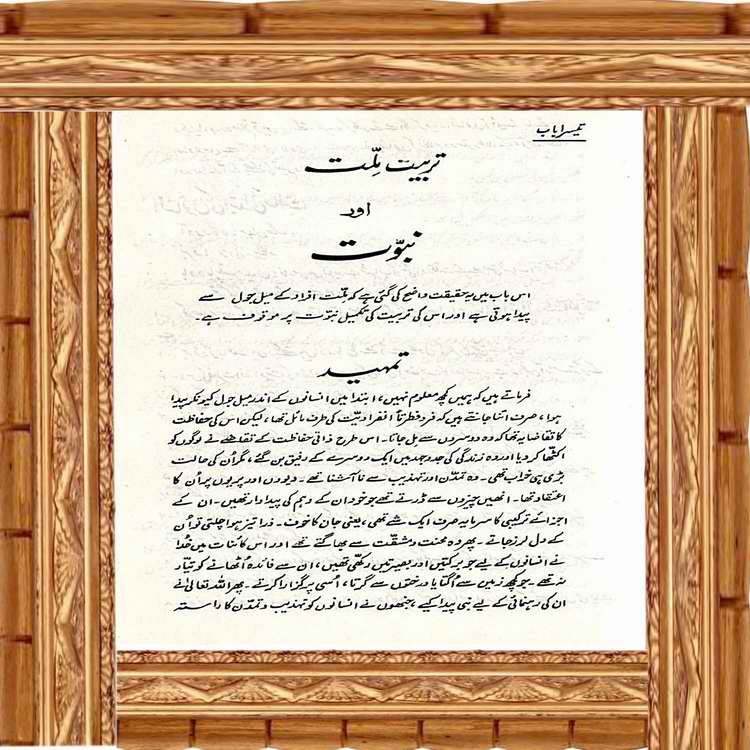 تیسرا باب
تربیت مِلّت
اور
نبوّت
اس باب میں یہ حقیقت واضح کی گئی ہے کہ مِلّت افراد کے میل جول سے
پیدا ہوتی ہے اور اس کی تربیت کی تکمیل نبوّت پر موقوف ہے۔
تمہید
فرماتے ہیں کہ ہمیں کچھ معلوم نہیں، ابتدا میں انسانوں کے اندر میل جول کیونکر پیدا
ہوا، صرف اتنا جانتے ہیں کہ فرد فطرتاً انفرادیّت کی طرف مائل تھا، لیکن اس کی حفاظت
کا تقاضا یہ تھا کہ وہ دوسروں سے مل جاتا۔ اس طرح ذاتی حفاظت کے تقاضے نے لوگوں کو
اکٹھا کر دیا اور وہ زندگی کی جدوجہد میں ایک دوسرے کے رفیق بن گئے، مگر اُن کی حالت
بڑی ہی خراب تھی۔ وہ تمدّن اور تہذیب سے ناآشنا تھے۔ دیووں اور پریوں پر اُن کا
اعتقاد تھا۔ انھیں چیزوں سے ڈرتے تھے جو خود ان کے وہم کی پیداوار تھیں۔ ان کے
اجزائے ترکیبی کا سرمایہ صرف ایک شے تھی، یعنی جان کا خوف۔ ذرا تیز ہوا چلتی تو اُن
کے دل لرز جاتے۔ پھر وہ محنت و مشقّت سے بھاگتے تھے اور اس کائنات میں خُدا
نے انسانوں کے لیے جو برکتیں اور بصیرتیں رکھی تھیں، ان سے فائدہ اُٹھانے کو تیّار
نہ تھے۔ جو کچھ زمین سے اُگتا یا درختوں سے گرتا، اُسی پر گزارا کرتے۔ پھر اللہ تعالیٰ نے
ان کی رہنمائی کے لیے نبی پیدا کیے، جنھوں نے انسانوں کو تہذیب و تمدّن کا راستہ